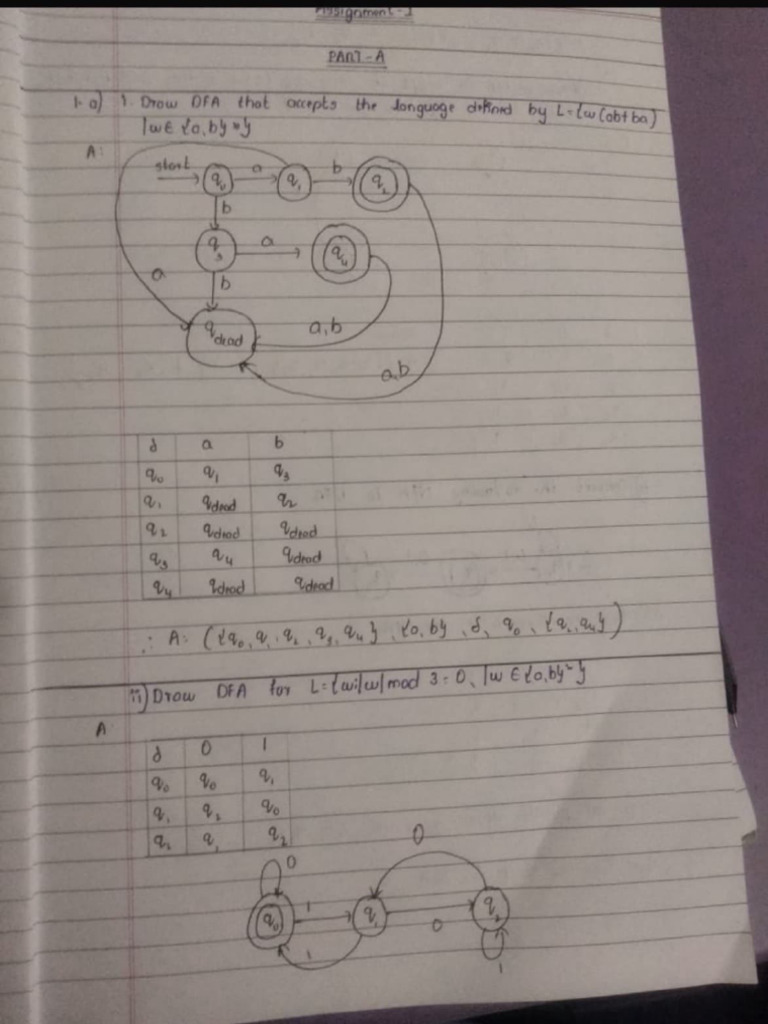 Assignment-1
PART-A
1. a) 1. Draw DFA that accepts the language defined by L={w(ab+ba)
|w∈{a,b}*}
A:
start q0 a q1 b q2
b
q3 a q4
a b
qdead a,b
a,b
δ a b
q0 q1 q3
q1 qdead q2
q2 qdead qdead
q3 q4 qdead
q4 qdead qdead
∴ A: ({q0, q1, q2, q3, q4}, {a,b}, δ, q0, {q2, q4})
ii) Draw DFA for L={w:|w| mod 3=0, |w∈{a,b}*}
A
δ 0 1
q0 q0 q1
q1 q2 q0
q2 q1 q2
0
0
q0 1 q1 0 q2
1 1